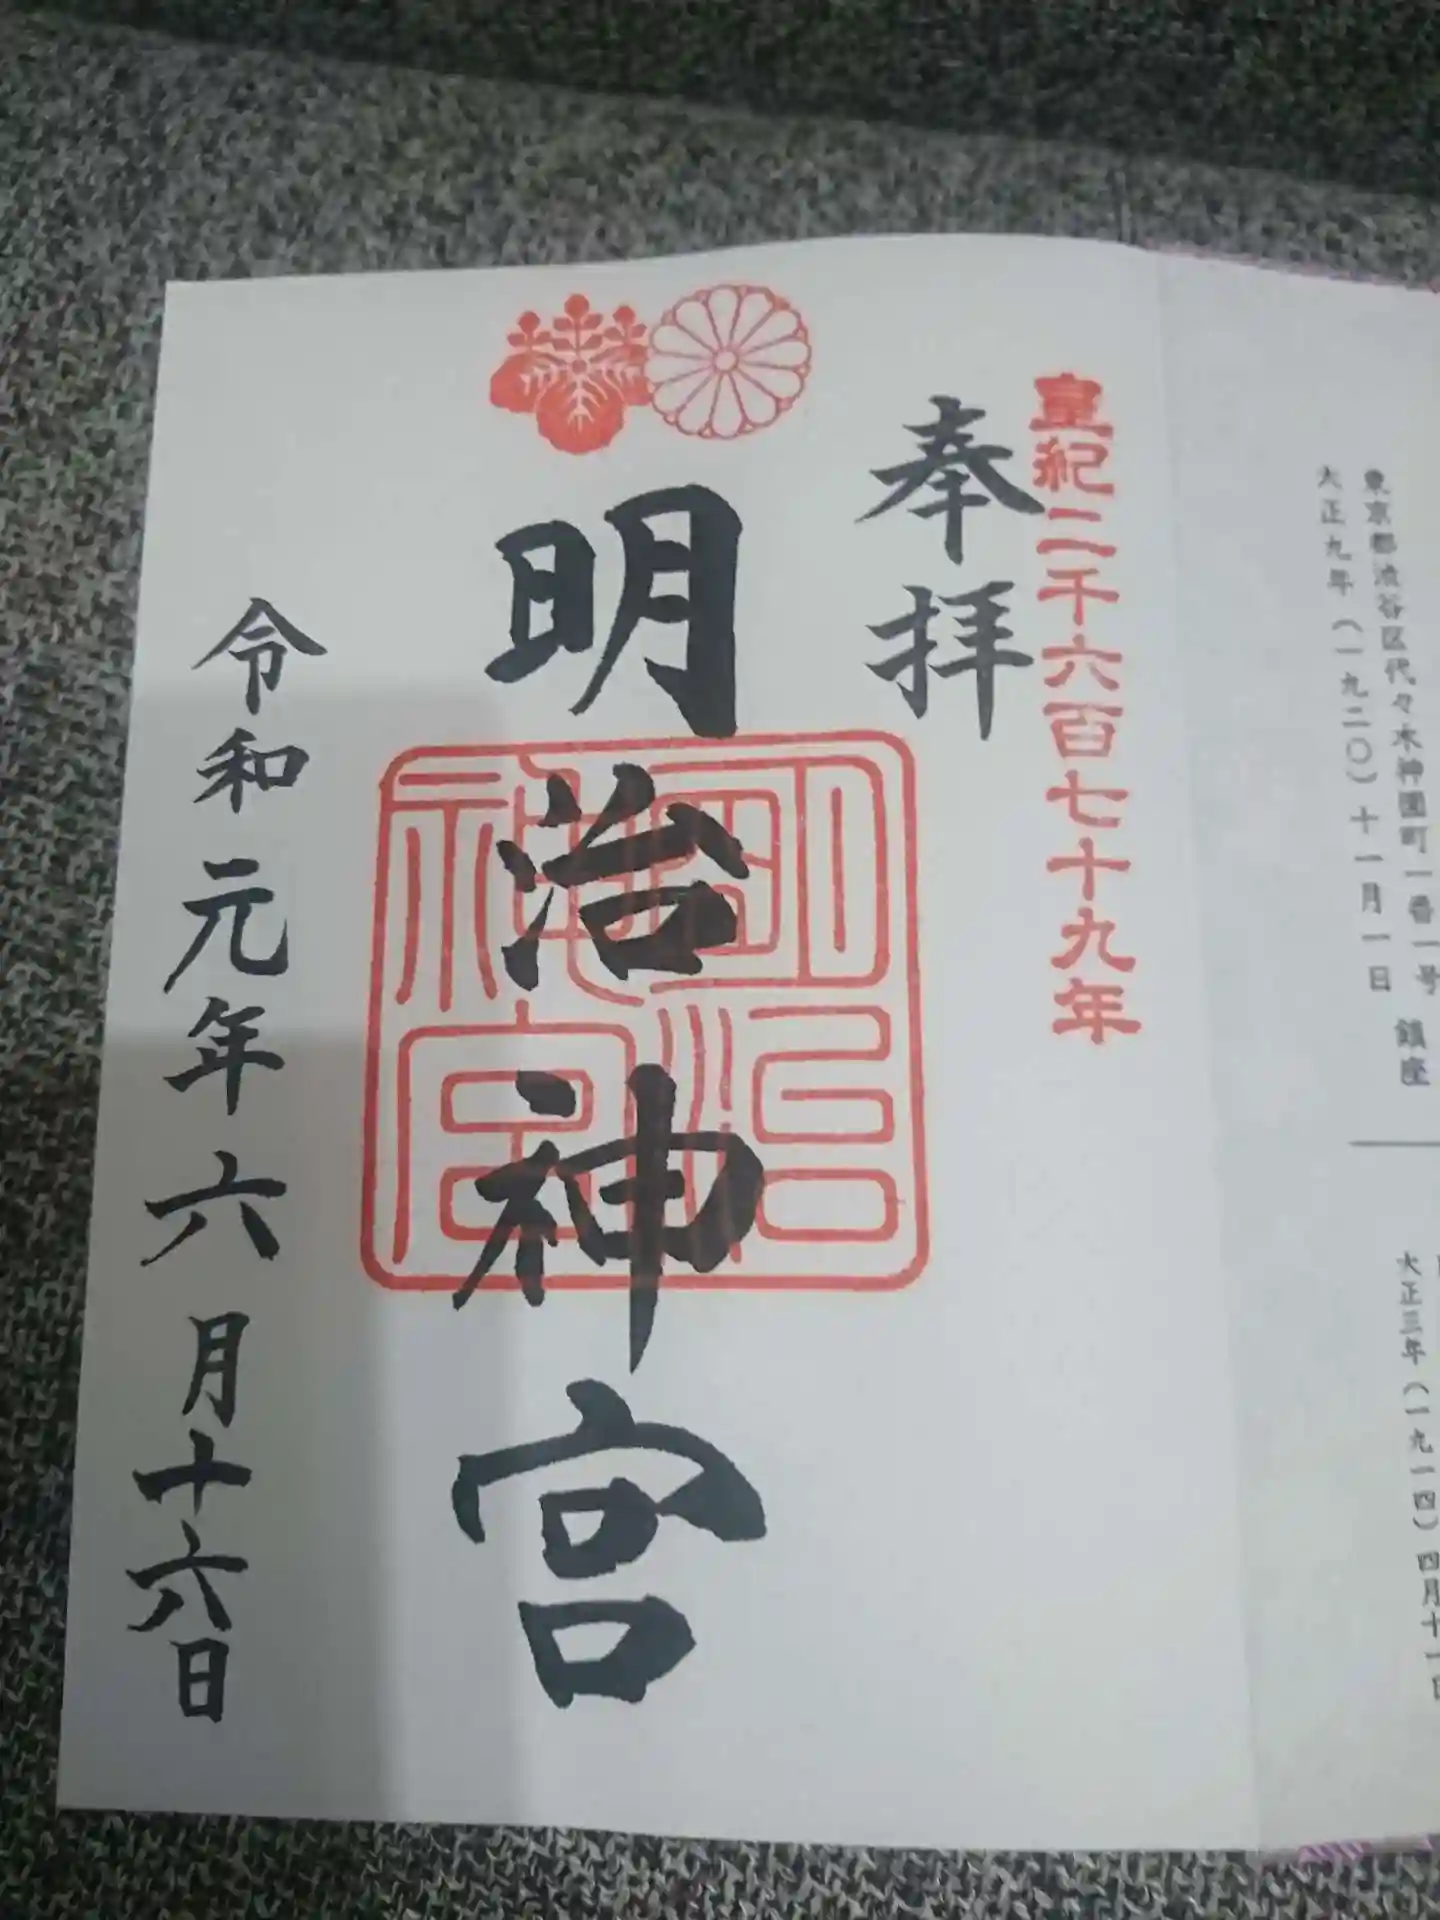 東京都渋谷区代々木神園町一番一号
大正九年（一九二〇）十一月一日 鎮座
大正三年（一九一四）四月十一日
皇紀二千六百七十九年
奉拝
明治神宮
明治神宮
令和元年六月十六日